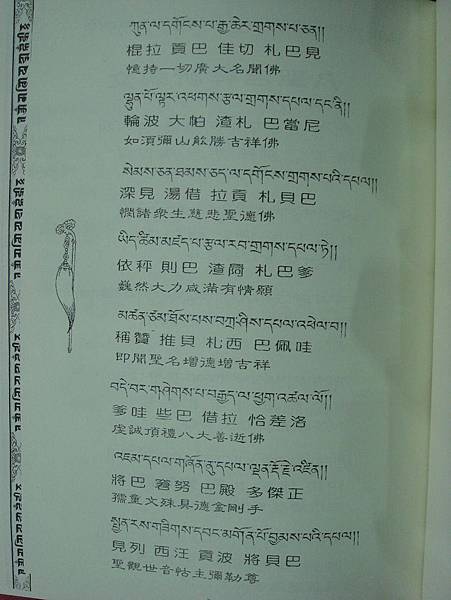 ཀུན་ལ་དགོངས་པ་རྒྱ་ཆེར་གྲགས་པ་ཅན།།
棍拉 貢巴 佳切 札巴見
憶持一切廣大名聞佛
ལྷུན་པོ་ལྟར་འཕགས་རྩལ་གྲགས་དཔལ་དང་ནི།།
輪波 大帕 渣札 巴當尼
如須彌山般勝吉祥佛
སེམས་ཅན་ཐམས་ཅད་ལ་དགོངས་གྲགས་པའི་དཔལ།།
深見 湯借 拉貢 札貝巴
憫諸衆生慈悲聖德佛
ཡིད་ཚིམ་མཛད་པ་རྩལ་རབ་གྲགས་དཔལ་ཏེ།།
依秤 則巴 札巴爹
巍然大力咸滿有情願
མཚན་ཙམ་ཐོས་པས་བཀྲ་ཤིས་དཔལ་འཕེལ་བ།།
稱贊 推貝 札西 巴佩哇
即聞聖名增德增吉祥
བདེ་བར་གཤེགས་པ་བརྒྱད་ལ་ཕྱག་འཚལ་ལོ།།
爹哇 些巴 借拉 恰差洛
虔誠頂禮八大善逝佛
འཇམ་དཔལ་གཞོན་ནུ་དཔལ་ལྡན་རྡོ་རྗེ་འཛིན།།
將巴 巴殿 多傑正
孺童文殊具德金剛手
སྤྱན་རས་གཟིགས་དབང་མགོན་པོ་བྱམས་པའི་དཔལ།།
見列 西汪 貢波 將貝巴
聖觀世音怙主彌勒尊